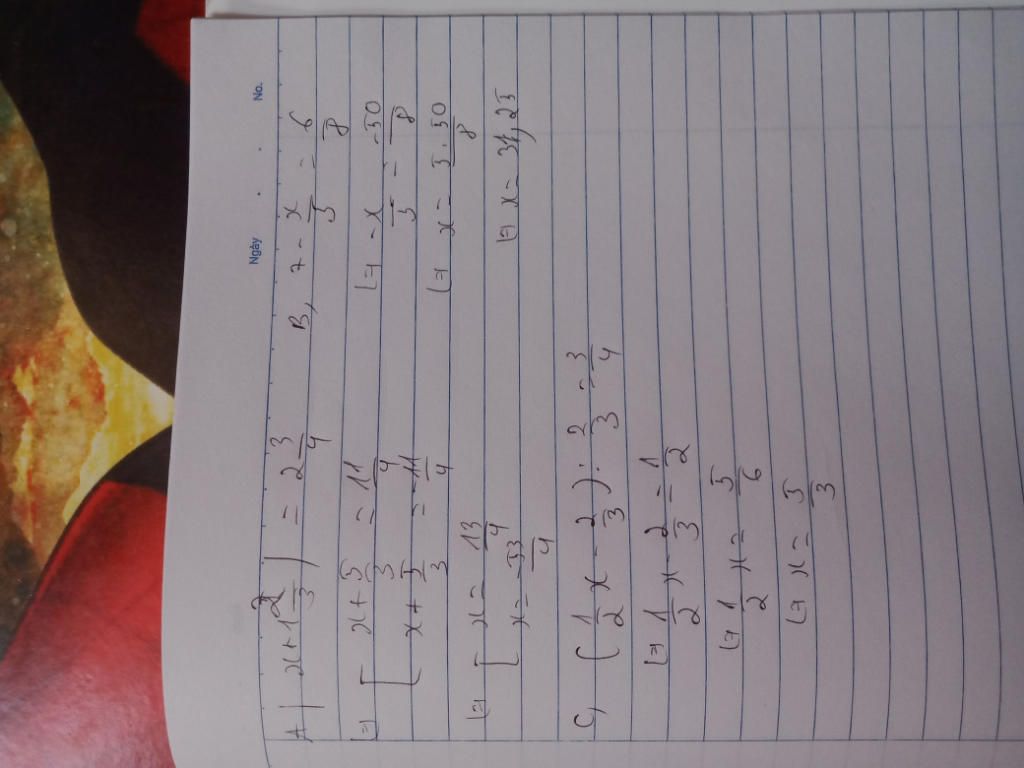 Ngày . . No.
A| x+1 2/3 | = 2 3/4
⇔ [ x+5/3 = 11/4
[ x+5/3 = -11/4
⇔ [ x = 13/4
[ x = -53/4
B, 7 - x/5 = 6/8
⇔ - x/5 = -50/8
⇔ x = 5.50/8
⇔ x = 31,25
C, (1/2 x - 2/3) : 2/3 = 3/4
⇔ 1/2 x - 2/3 = 1/2
⇔ 1/2 x = 5/6
⇔ x = 5/3